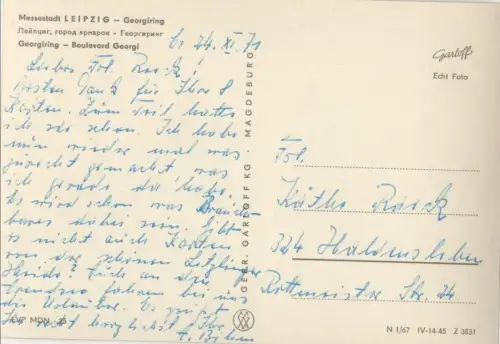 Messestadt LEIPZIG – Georgiring
Лейпциг, город ярмарок - Георгиринг
Georgiring – Boulevard Georgi
24. XI. 71
Liebes Frl. Rack!
Besten Dank für Ihre 8
Karten. Zum Teil hatte
ich sie schon. Ich habe
nun wieder mal was
zurecht gemacht was
ich gerade da habe.
Es wird schon was Brauch-
bares dabei sein. Gibt
es nicht auch Karten
von der schönen Letzlinger
Heide? Auch an den
fahren bei uns
die Urlauber. Es
Sie herzlichst Ihr
EVP MDN -,25
GEBR. GARLOFF KG MAGDEBURG
Garloff
Echt Foto
Frl.
Käthe Rack
324 Haldensleben
Rottmeister Str. 24
N 1/67 IV-14-45 Z 3831